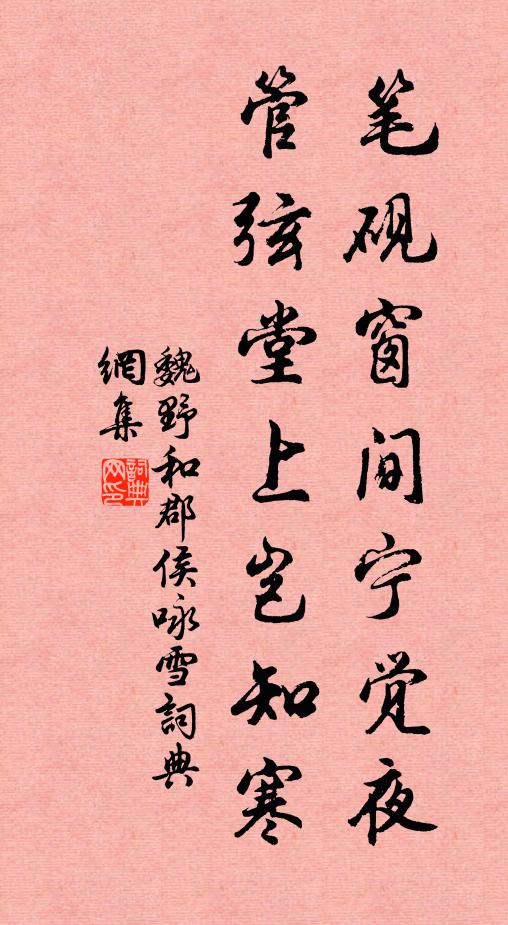 笔砚窗间宁觉夜
管弦堂上岂知寒
魏野和郡侯咏雪詞典
網集
詞典
网印